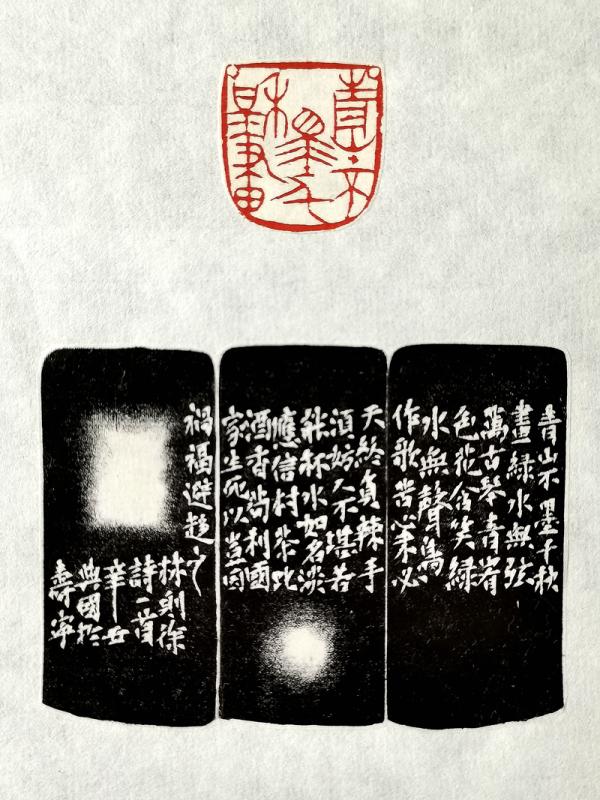 青山不
墨千
秋畫
青山不墨千秋
畫綠水無弦
萬古琴青山有
色花含笑綠
水無聲鳥
作歌苦心未必
天終負辣手
須妨人不堪若
能杯水如名淡
應信村茶比
酒香苟利國
家生死以豈因
禍福避趨之
林則徐
詩一首
辛丑
興國於
壽寧